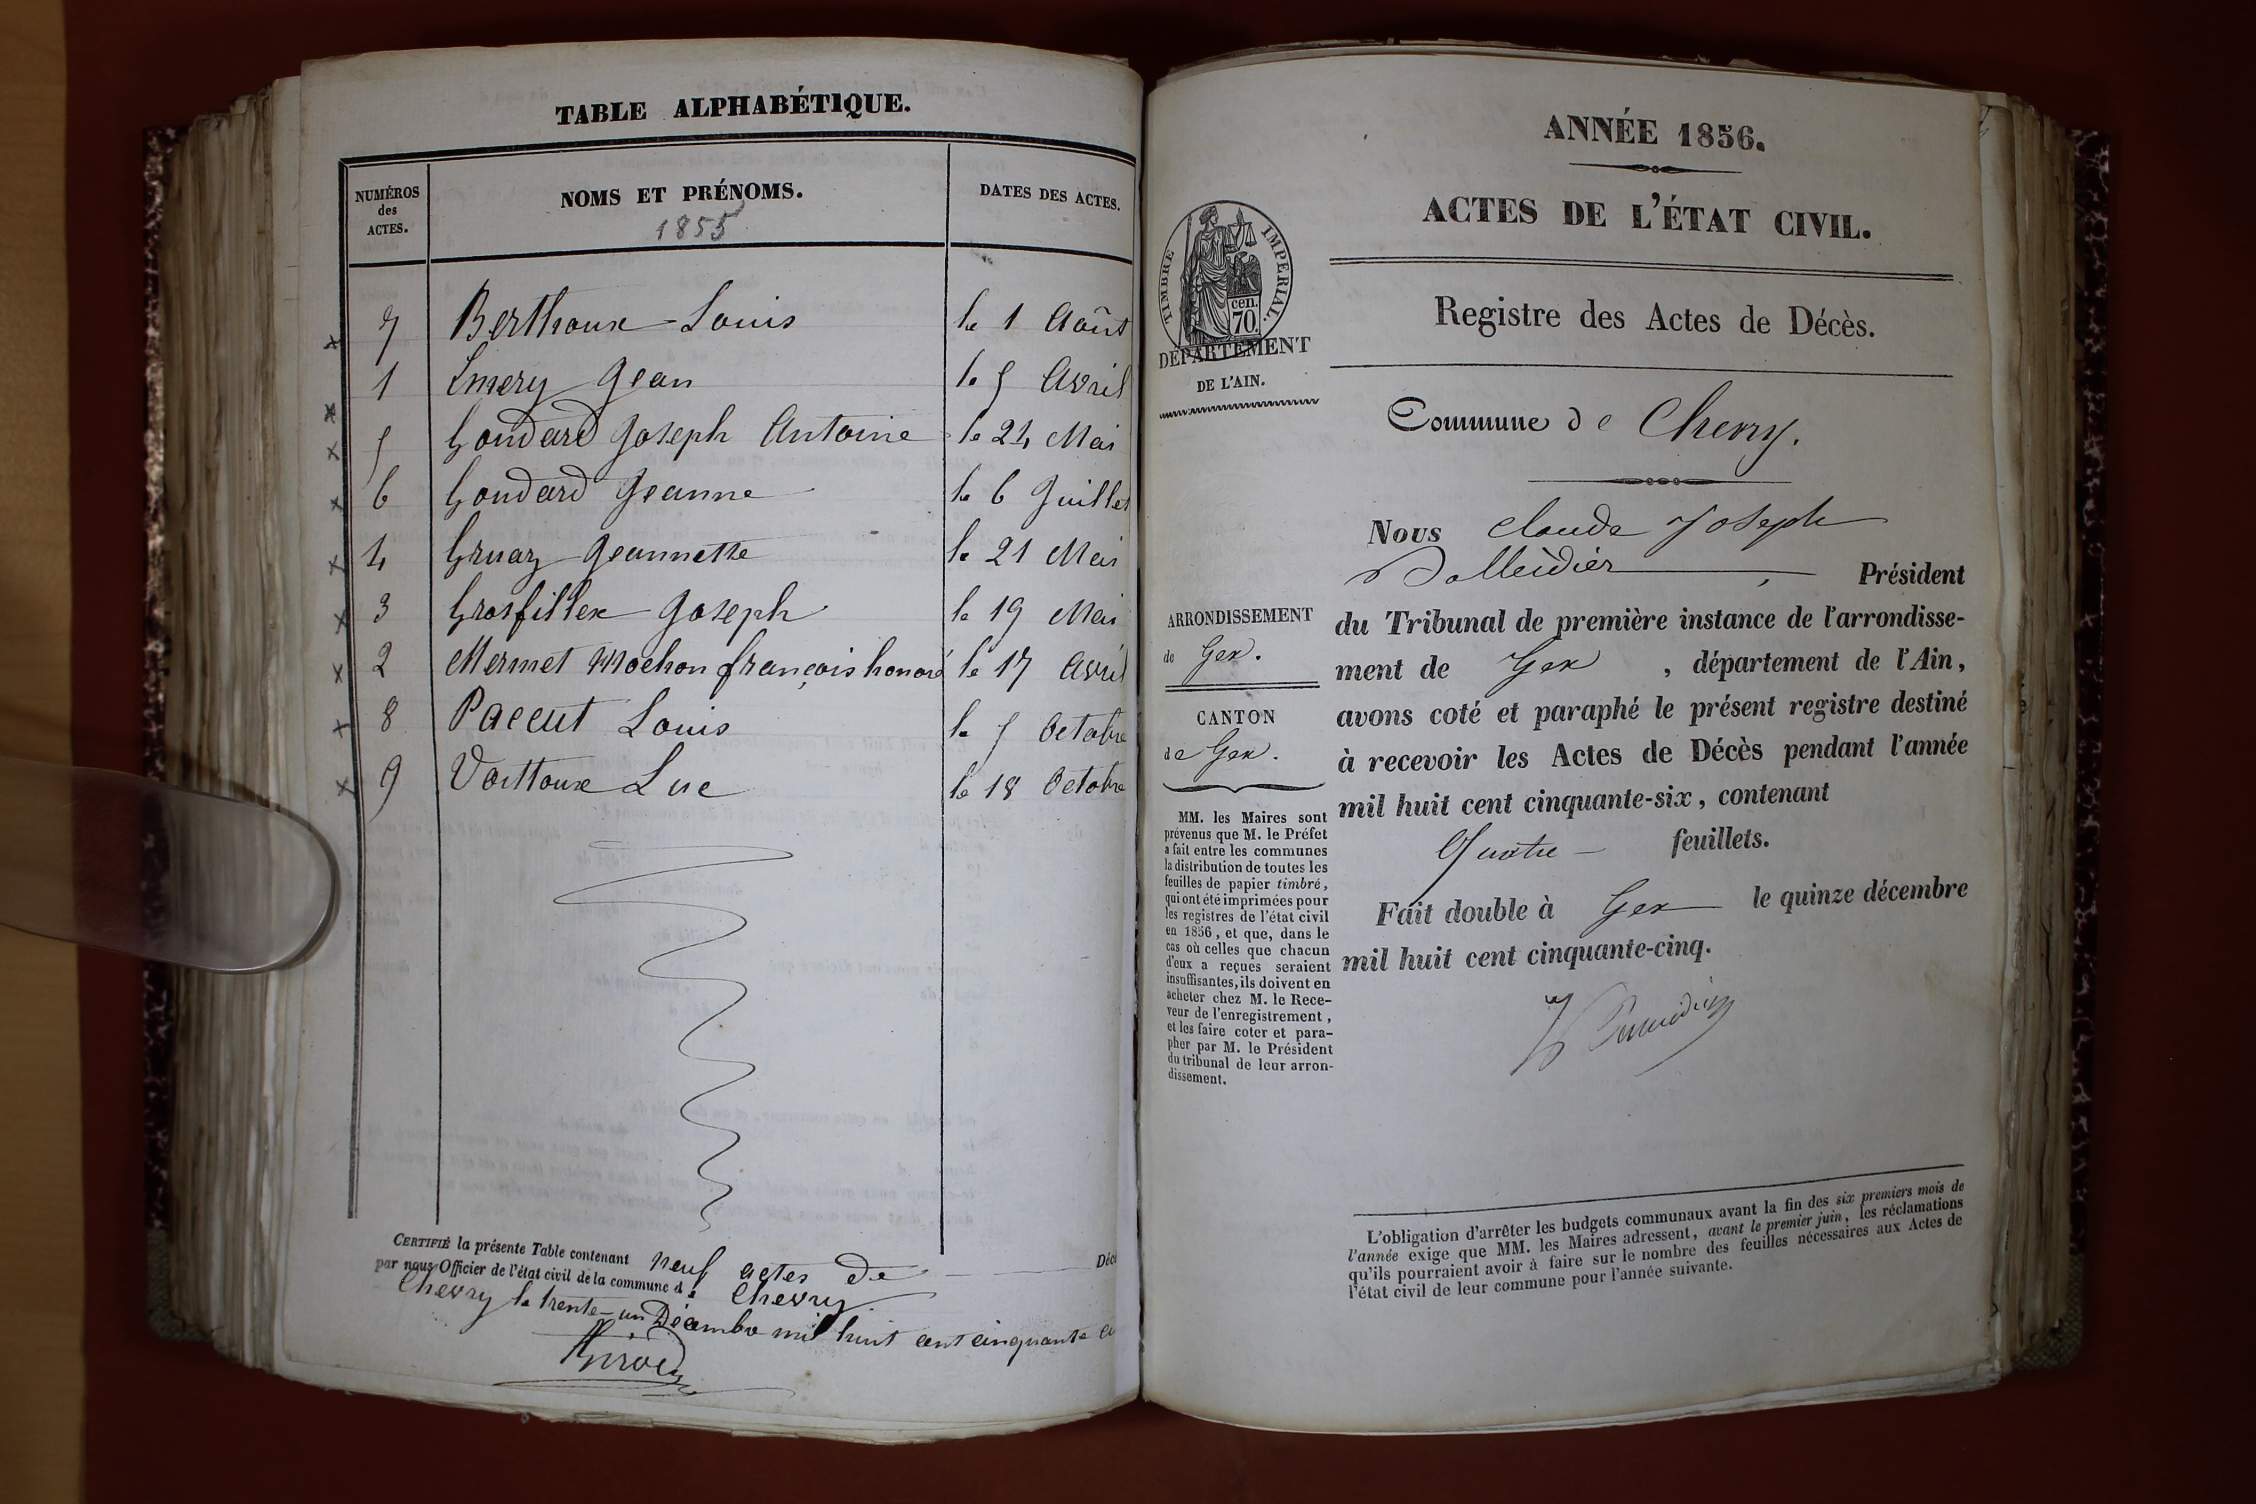 TABLE ALPHABÉTIQUE.
NUMÉROS
des
ACTES.
NOMS ET PRÉNOMS.
1855
DATES DES ACTES.
7 Berthoux Louis le 1 Août
1 Emery Jean le 5 Avril
5 Goudard Joseph Antoine le 24 Mai
6 Goudard Jeanne le 6 Juillet
4 Gruaz Jeannette le 21 Mai
3 Grosfillex Joseph le 19 Mai
2 Mermet Mochon françois honoré le 17 Avril
8 Paccut Louis le 5 Octobre
9 Vuittoux Luc le 18 Octobre
CERTIFIÉ la présente Table contenant neuf actes de Déc
par nous Officier de l'état civil de la commune de Chevry.
Chevry le trente-un Décembre mil huit cent cinquante
ANNÉE 1856.
ACTES DE L'ÉTAT CIVIL.
TIMBRE IMPERIAL.
cen.
70.
DÉPARTEMENT
DE L'AIN.
Registre des Actes de Décès.
Commune de Chevry.
Nous Claude Joseph
Président
du Tribunal de première instance de l'arrondisse-
ment de Gex, département de l'Ain,
avons coté et paraphé le présent registre destiné
à recevoir les Actes de Décès pendant l'année
mil huit cent cinquante-six, contenant
Quatre feuillets.
Fait double à Gex le quinze décembre
mil huit cent cinquante-cinq.
ARRONDISSEMENT
de Gex.
CANTON
de Gex.
MM. les Maires sont
prévenus que M. le Préfet
a fait entre les communes
la distribution de toutes les
feuilles de papier timbré,
qui ont été imprimées pour
les registres de l'état civil
en 1856, et que, dans le
cas où celles que chacun
d'eux a reçues seraient
insuffisantes, ils doivent en
acheter chez M. le Rece-
veur de l'enregistrement,
et les faire coter et para-
pher par M. le Président
du tribunal de leur arron-
dissement.
L'obligation d'arrêter les budgets communaux avant la fin des six premiers mois de
l'année exige que MM. les Maires adressent, avant le premier juin, les réclamations
qu'ils pourraient avoir à faire sur le nombre des feuilles nécessaires aux Actes de
l'état civil de leur commune pour l'année suivante.